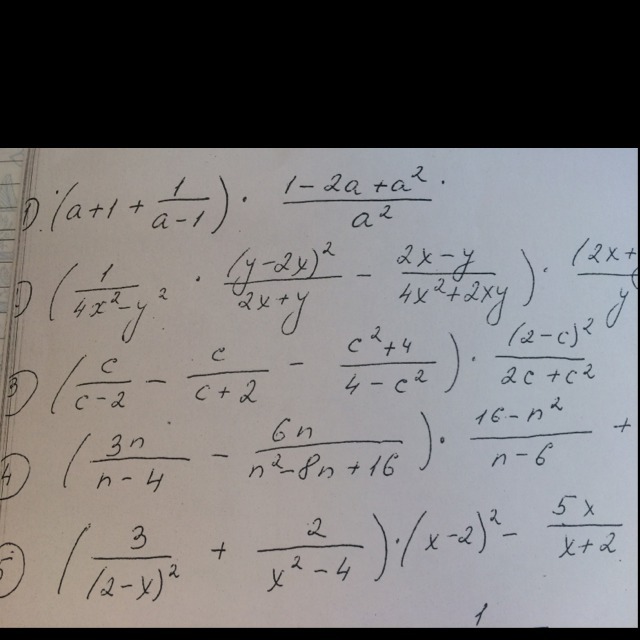 1) (a+1 + 1/(a-1)) · (1-2a+a²)/a²
2) (1/(4x²-y²) · (y-2x)²/(2x+y) - (2x-y)/(4x²+2xy)) · (2x+/y
3) (c/(c-2) - c/(c+2) - (c²+4)/(4-c²)) · (2-c)²/(2c+c²)
4) (3n/(n-4) - 6n/(n²-8n+16)) · (16-n²)/(n-6) +
5) (3/(2-x)² + 2/(x²-4)) · (x-2)² - 5x/(x+2)
1